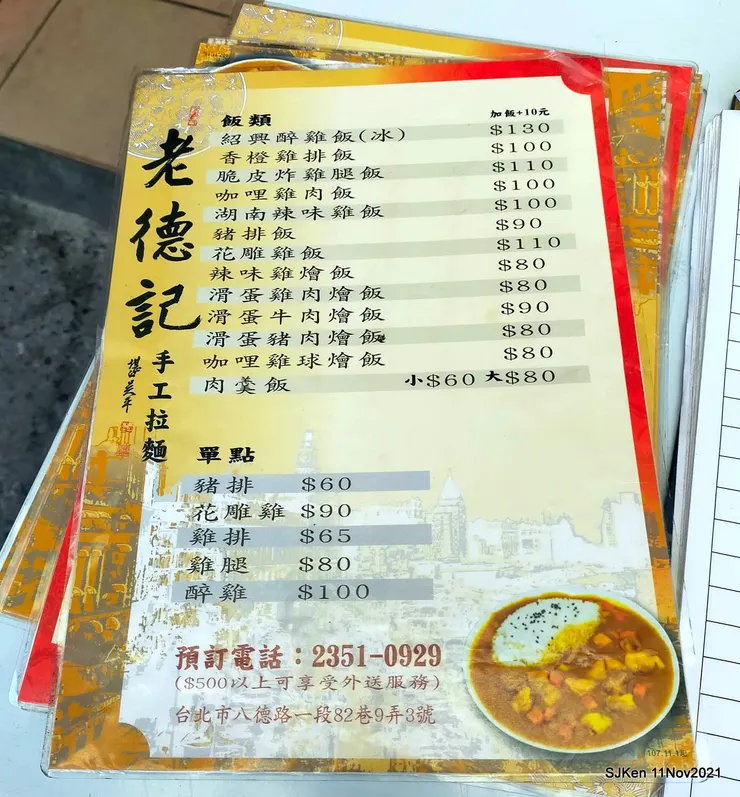 老德記
手工拉麵
飯類 加飯+10元
紹興醉雞飯(冰) $130
香橙雞排飯 $100
脆皮炸雞腿飯 $110
咖哩雞肉飯 $100
湖南辣味雞飯 $100
豬排飯 $90
花雕雞飯 $110
辣味雞燴飯 $80
滑蛋雞肉燴飯 $80
滑蛋牛肉燴飯 $90
滑蛋豬肉燴飯 $80
咖哩雞球燴飯 $80
肉羹飯 小$60 大$80
單點
豬排 $60
花雕雞 $90
雞排 $65
雞腿 $80
醉雞 $100
預訂電話：2351-0929
($500以上可享受外送服務)
台北市八德路一段82巷9弄3號
SJKen 11Nov2021